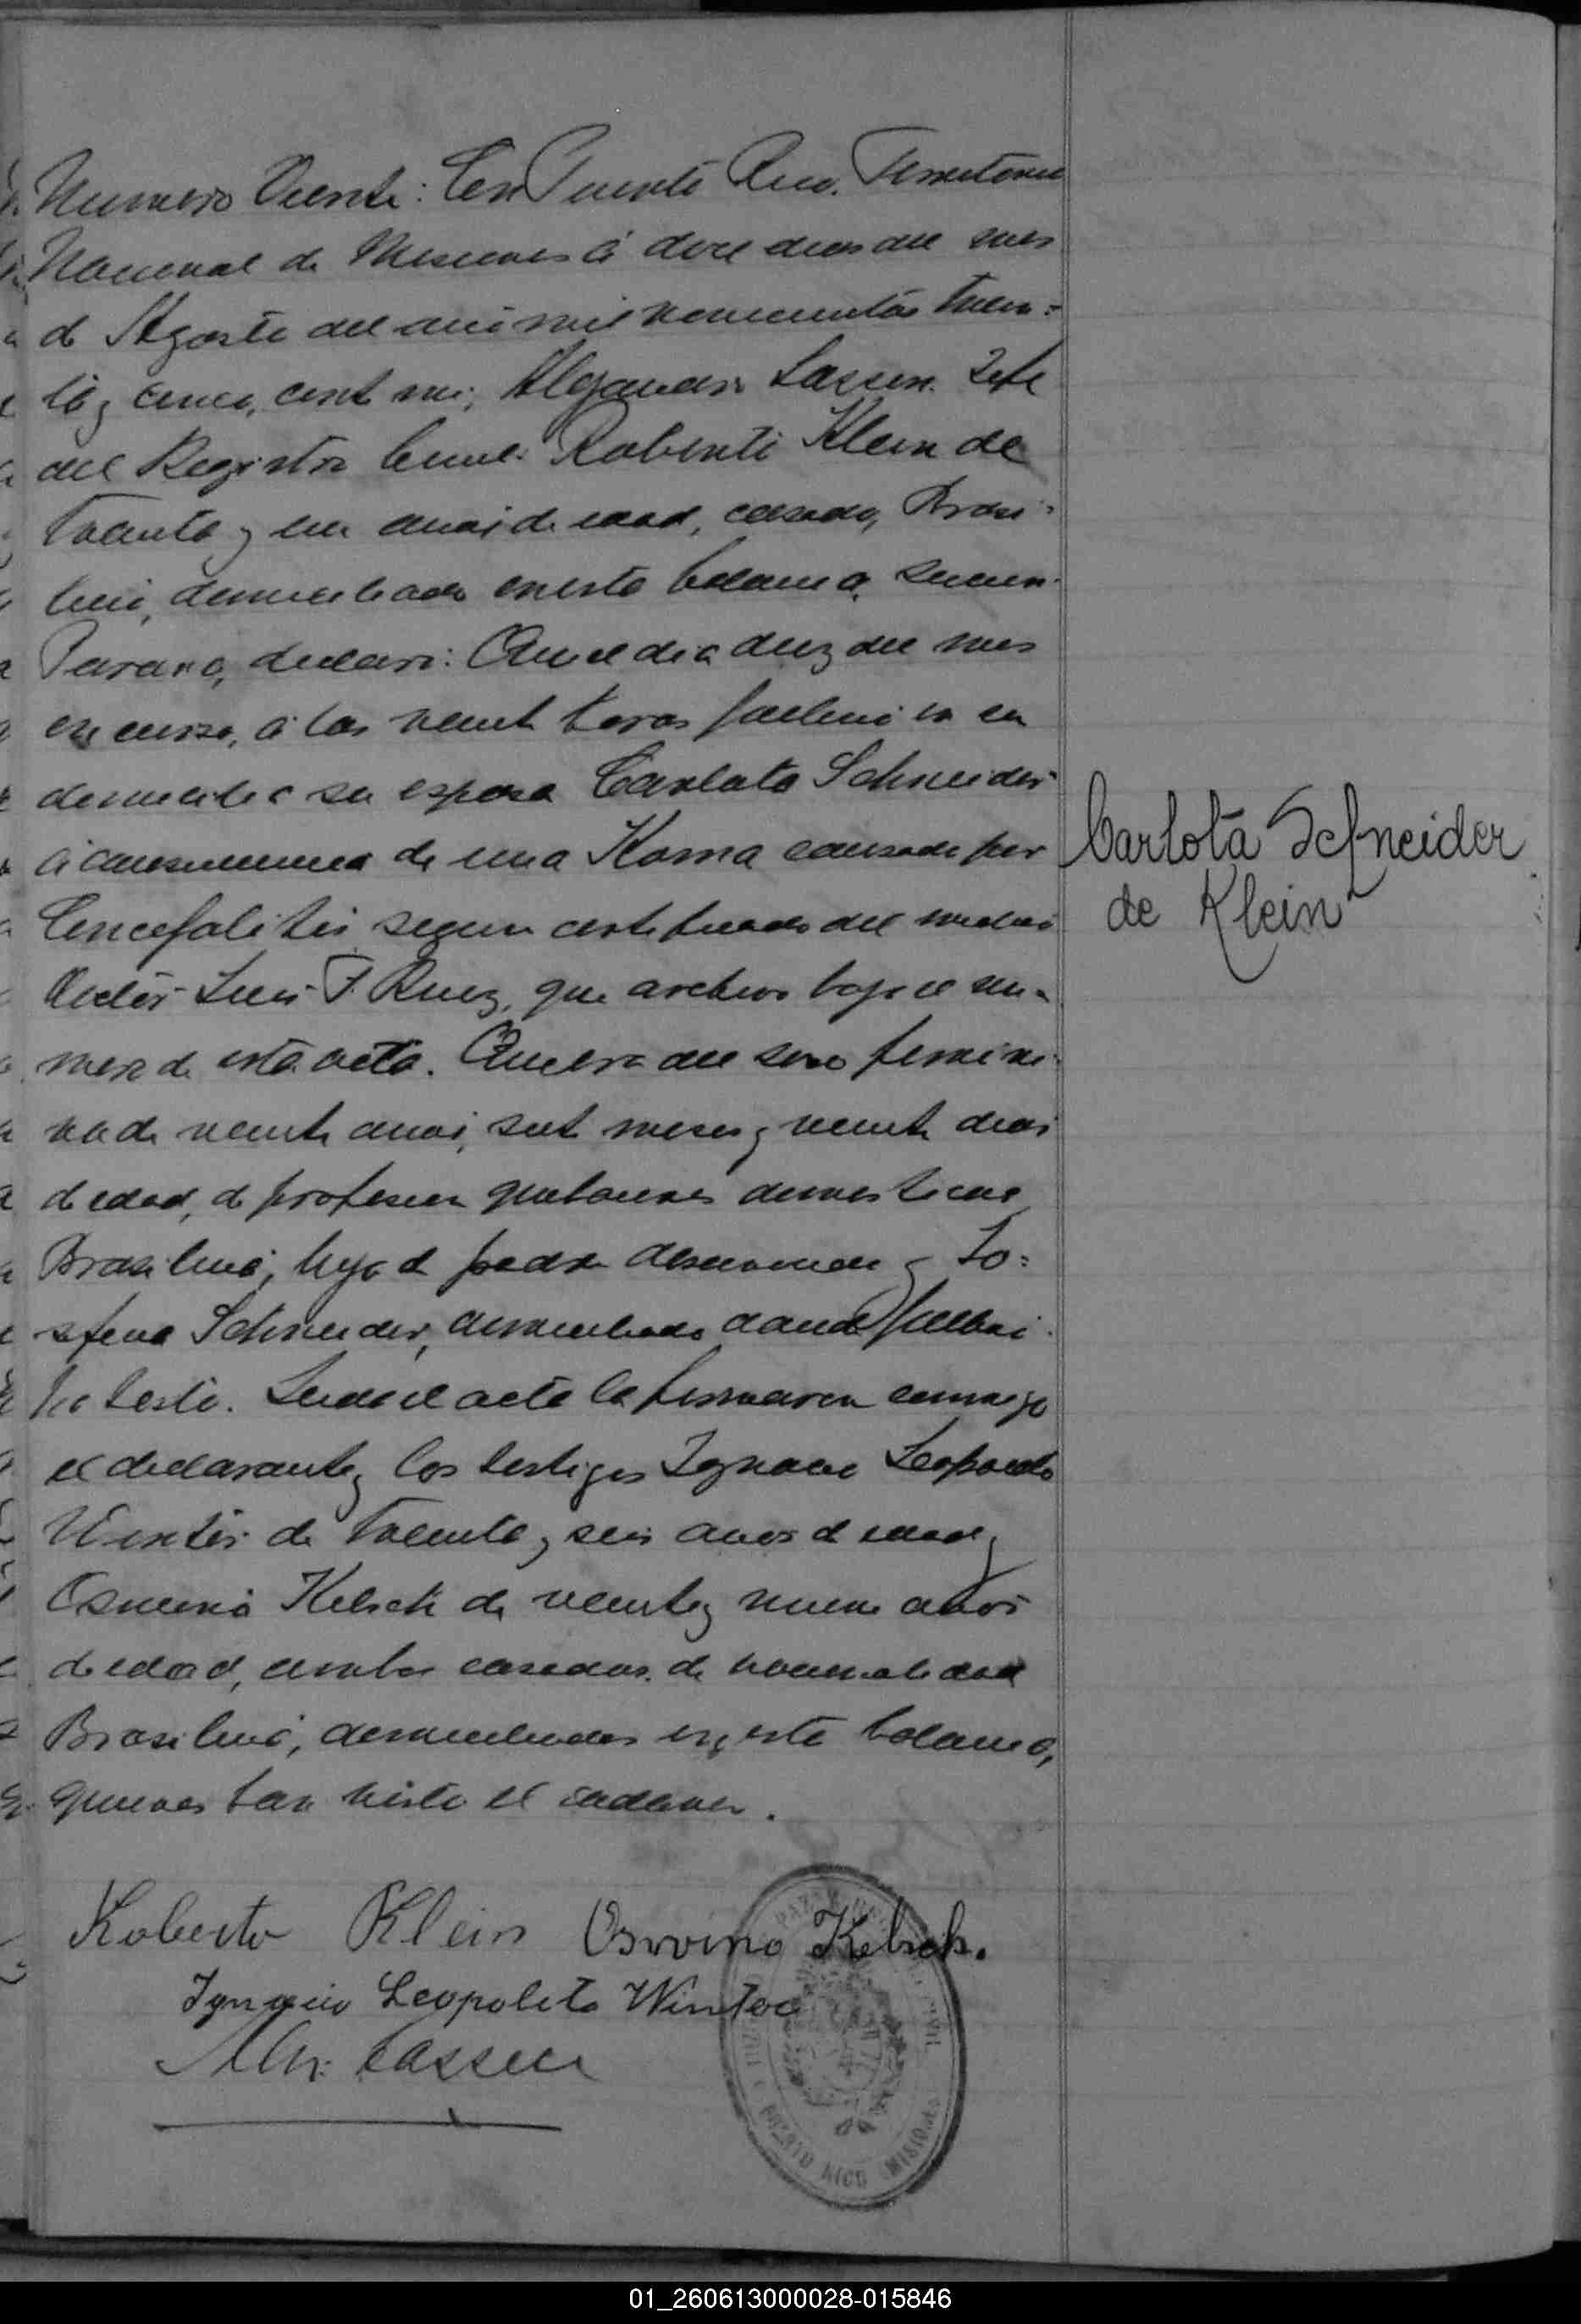 Numero Veinte: En Puerto Rico. Territorio
Nacional de Misiones á doce dias del mes
de Agosto del año mil novecientos trein=
ta y cinco, ante mi, Alejandro Lassen. Jefe
del Registro Civil: Roberto Klein de
treinta y un años de edad, casado, Brasi-
leño, domiciliado en esta Colonia,
Parana, declaró: Que el dia diez del mes
en curso, á las veinte horas falleció en su
domicilio su esposa Carlota Schneider
á consecuencia de una Koma causada por
Encefalitis segun certificado del medico
Doctor Luis F. Ruiz, que archivo bajo el nu-
mero de esta acta. Que era del sexo femeni-
no de veinte años, siete meses y veinte dias
de edad, de profesion quehaceres domesticos
Brasileña, hija de padre desconocido y Jo=
sefina Schneider, domiciliada donde falleció.
No testó. Leida el acta la firmaron conmigo
el declarante y los testigos Ignacio Leopoldo
Winter de treinta y seis años de edad y
Osvino Kelsch de veinte y nueve años
de edad, ambos casados. de nacionalidad
Brasileña, domiciliados en esta Colonia,
quienes han visto el cadaver.
Carlota Schneider
de Klein
Roberto Klein Osvino Kelsch.
Ignacio Leopoldo Winter
Alej. Lassen
PUERTO RICO MISIONES
01_260613000028-015846